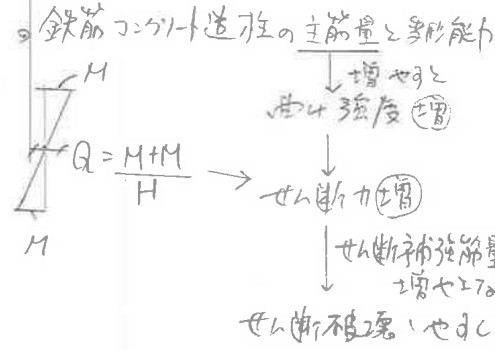 鉄筋コンクリート造柱の主筋量と変形能力
増やすと
M
曲げ強度 増
Q = M+M / H
せん断力 増
M
せん断補強筋量
増やさな
せん断破壊しやすく